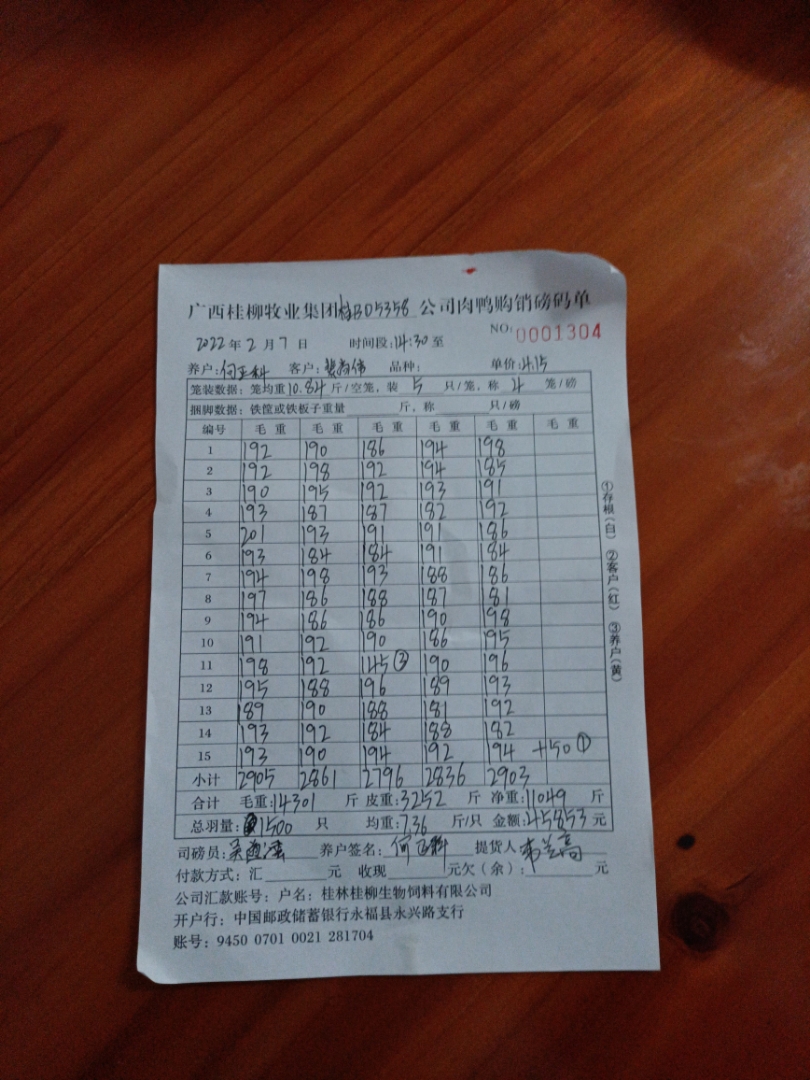 广西桂柳牧业集团桂BD5358公司肉鸭购销磅码单
NO:0001304
2022年2月7日 时间段:14:30至
养户:何正科 客户: 品种: 单价:4.15
笼装数据:笼均重10.84斤/空笼,装5只/笼,称4笼/磅
捆脚数据:铁筐或铁板子重量 斤,称 只/磅
编号 毛重 毛重 毛重 毛重 毛重 毛重
1 192 190 186 194 198
2 192 198 192 194 185
3 190 195 192 193 191
4 193 187 187 182 192
5 201 193 191 191 186
6 193 184 184 191 184
7 194 198 193 188 186
8 197 186 188 187 181
9 194 186 186 190 198
10 191 192 190 186 195
11 198 192 145③ 190 196
12 195 188 196 189 193
13 189 190 188 181 192
14 193 192 184 188 182
15 193 190 194 192 194 +50①
小计 2905 2861 2796 2836 2903
合计 毛重:14301斤 皮重:3252斤 净重:11049斤
总羽量:1500只 均重:7.36斤/只 金额:45853元
司磅员: 养户签名:何正科 提货人:韦兰高
付款方式:汇 元 收现 元欠(余): 元
公司汇款账号:户名:桂林桂柳生物饲料有限公司
开户行:中国邮政储蓄银行永福县永兴路支行
账号:9450 0701 0021 281704
①存根(白) ②客户(红) ③养户(黄)